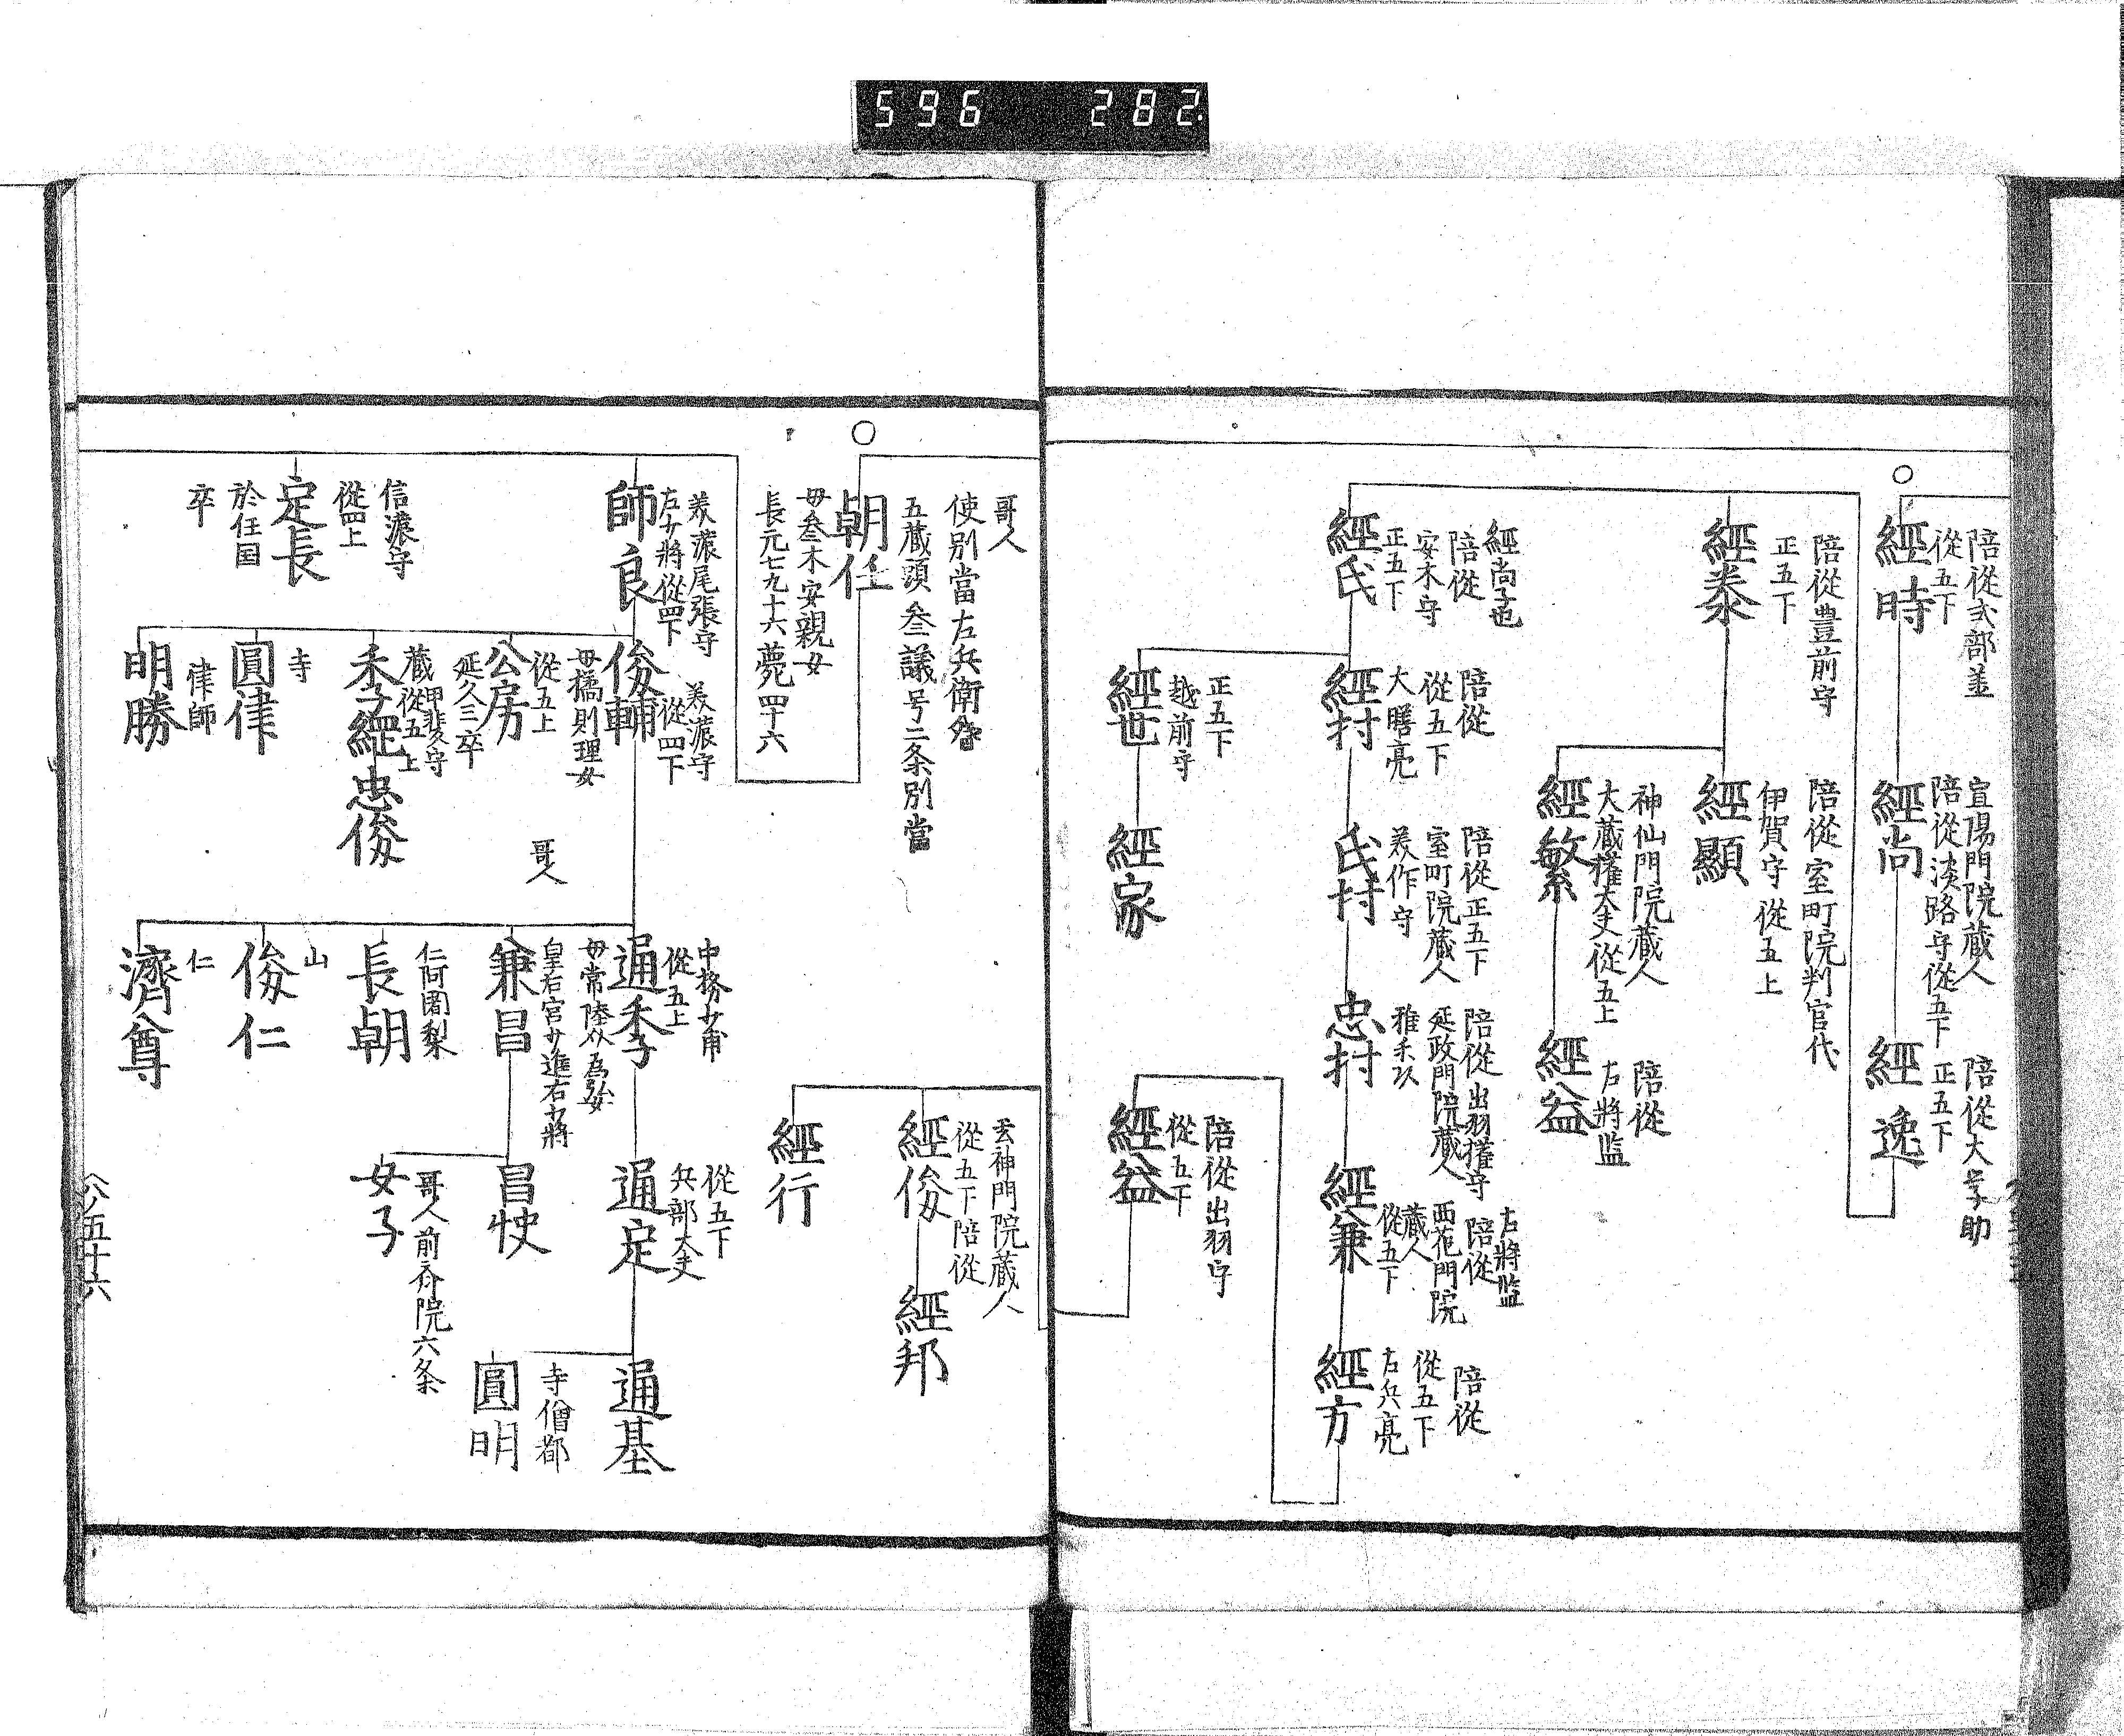 596 282
陪從式部丞
從五下
經時
宣陽門院蔵人
陪從淡路守從五下
經尚
陪從大学助
正五下
經逸
陪從豊前守
正五下
經泰
陪從室町院判官代
伊賀守從五上
經顯
神仙門院蔵人
大蔵権大夫從五上
經繁
陪從
左將監
經益
經尚子也
陪從
安木守
正五下
經氏
陪從
從五下
大膳亮
經村
陪從正五下
室町院蔵人
美作守
氏村
陪從出羽権守
延政門院蔵人
雅楽頭
忠村
右將監
陪從
西花門院
蔵人
從五下
經兼
陪從
從五下
右兵亮
經方
正五下
越前守
經世
經家
陪從出羽守
從五下
經益
玄神門院蔵人
從五下陪從
經俊
經邦
經行
哥人
使別當左兵衛督
五蔵頭叁議号二条別當
朝任
母叁木安親女
長元七九十六薨四十六
美濃尾張守
左少將從四下
師良
美濃守
從四下
俊輔
母橘則理女
從五上
公房
延久三卒
甲斐守
蔵從五上
季經
忠俊
寺
圓律
律師
明勝
信濃守
從四上
定長
於任国
卒
中務少甫
從五上
通季
母常陸介為弘女
皇后宮少進右少將
兼昌
哥人
仁阿闍梨
長朝
山
俊仁
仁
濟尊
從五下
兵部大夫
通定
昌快
哥人前斎院六条
女子
通基
寺僧都
圓明
八ノ五十六